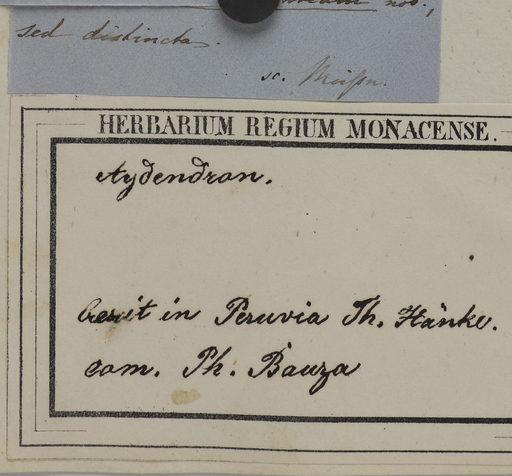 nov.,
sed distincta.
sc. Meissn.
HERBARIUM REGIUM MONACENSE.
Aydendron.
in Peruvia Th. Hänke.
com. Ph. Bauza